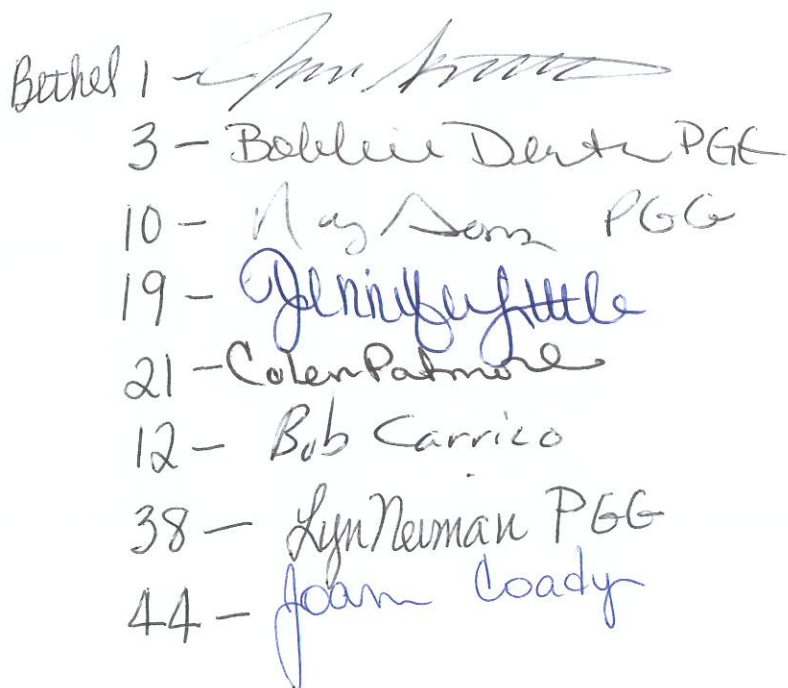 Bethel 1 -
3 - Bobbie PGG
10 - Ray PGG
19 - Jennifer Little
21 - Colen Patmore
12 - Bob Carrico
38 - Lyn Neuman PGG
44 - Joann Coady